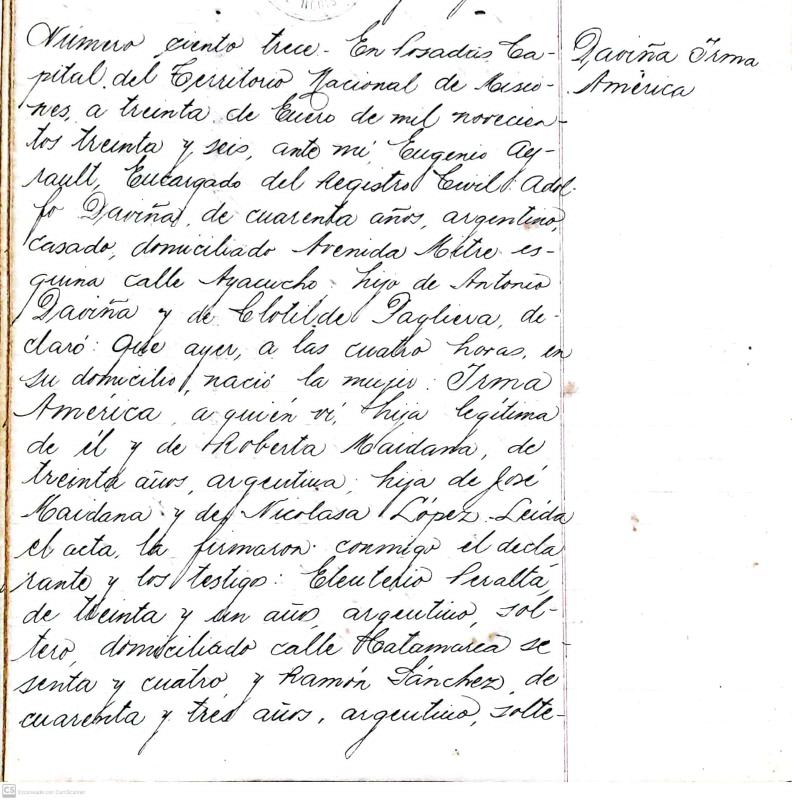 Número ciento trece - En Posadas Ca-
pital del Territorio Nacional de Misio-
nes, a treinta de Enero de mil novecien-
tos treinta y seis, ante mi, Eugenio Ay-
rault, Encargado del Registro Civil: Adol-
fo Daviña, de cuarenta años, argentino,
casado, domiciliado Avenida Mitre es-
quina calle Ayacucho hijo de Antonio
Daviña y de Clotilde Pagliera, de-
claró: Que ayer, a las cuatro horas, en
su domicilio, nació la mujer: Irma
América, a quién vi, hija legítima
de él y de Roberta Maidana, de
treinta años, argentina, hija de José
Maidana y de Nicolasa López. Leida
el acta, la firmaron conmigo el decla
rante y los testigo: Eleuterio Peralta,
de treinta y un años, argentino, sol-
tero, domiciliado calle Catamarca se-
senta y cuatro, y Ramón Sánchez, de
cuarenta y tres años, argentino, solte-
Daviña Irma
América
CS Escaneado con CamScanner